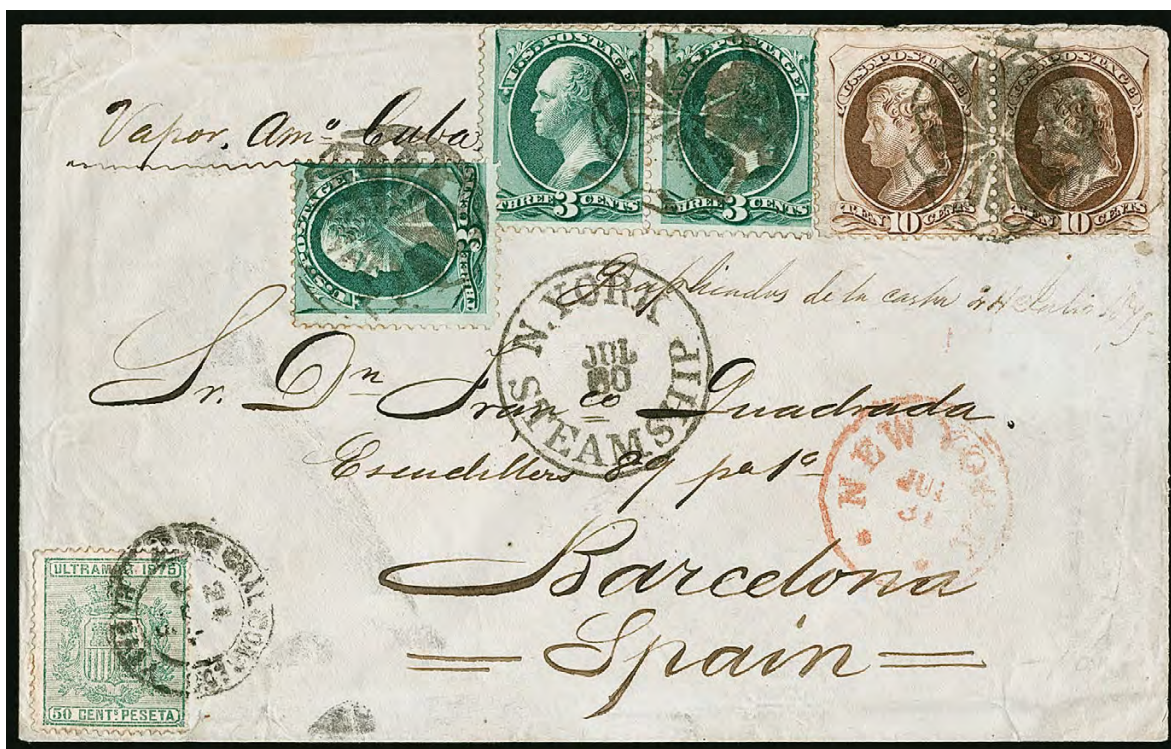 Vapor. Amº Cuba
U.S. POSTAGE
THREE 3 CENTS
U.S. POSTAGE
THREE 3 CENTS
U.S. POSTAGE
TEN 10 CENTS
U.S. POSTAGE
TEN 10 CENTS
U.S. POSTAGE
3 CENTS
de la carta
N. YORK
JUL
30
STEAMSHIP
Sr. Dn Franco Quadrada.
Escudillers 89 po 1º
NEW YORK
JUL
31
Barcelona
Spain
ULTRAMAR 1875
50 CENT. PESETA
HABANA